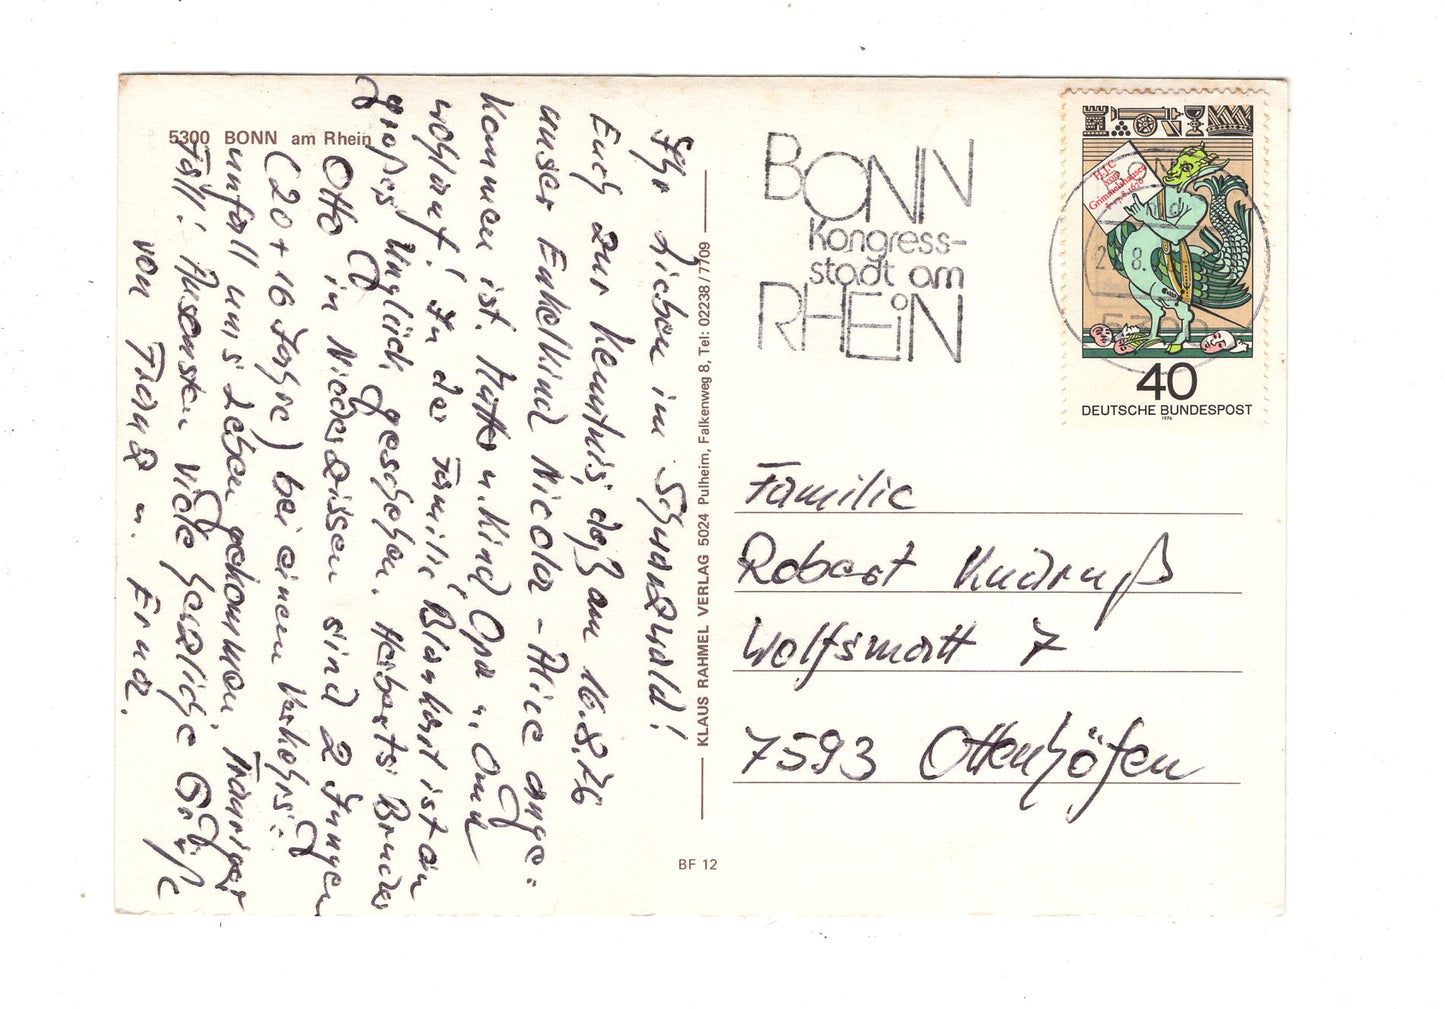 5300 BONN am Rhein
Ihr Lieben in Schwarzwald!
Euch zur Kenntnis, daß am 16.8.76
unser Enkelkind Nicola-Alice ange=
kommen ist. Mutter u. Kind, Opa u. Oma
wohlauf! In der Familie Blankart ist ein
großes Unglück geschehen. Herberts Bruder
Otto in Niederzissen sind 2 Jungen
(20 + 16 Jahre) bei einem Verkehrs=
unfall ums Leben gekommen. Trauriger
Fall! Ansonsten viele herzliche Grüße
von Franz u. Erna.
KLAUS RAHMEL VERLAG 5024 Pulheim, Falkenweg 8, Tel: 02238/7709
BF 12
BONN
Kongress-
stadt am
RHEIN
H.J.C
von
Grimmelshausen
40
DEUTSCHE BUNDESPOST
1976
5300
Familie
Robert Kudruß
Wolfsmatt 7
7593 Ottenhöfen